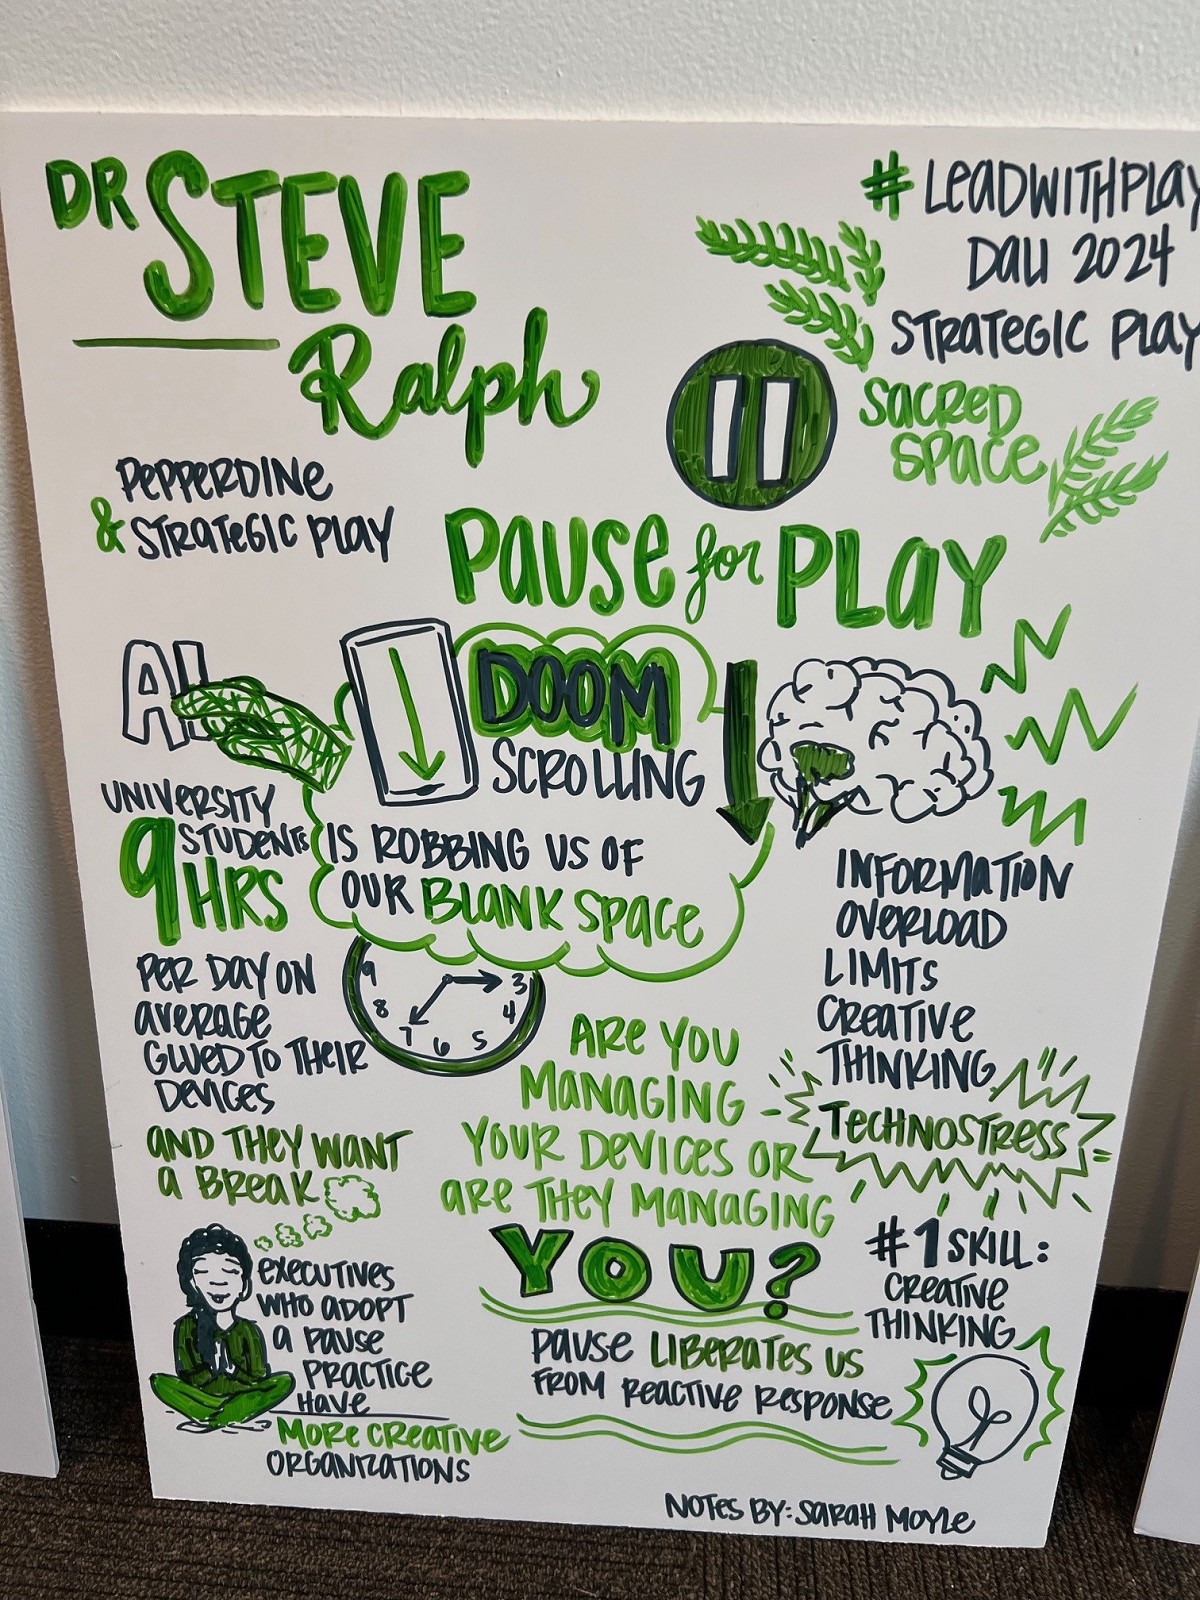 DR STEVE
Ralph
PEPPERDINE
& STRATEGIC PLAY
# LEADWITHPLAY
DAU 2024
STRATEGIC PLAY
SACRED
SPACE
PAUSE for PLAY
AI
DOOM
SCROLLING
IS ROBBING US OF
OUR BLANK SPACE
UNIVERSITY
STUDENTS
9 HRS
PER DAY ON
AVERAGE
GLUED TO THEIR
DEVICES
AND THEY WANT
A BREAK
9
8
7
6
5
4
3
INFORMATION
OVERLOAD
LIMITS
CREATIVE
THINKING
TECHNOSTRESS
ARE YOU
MANAGING
YOUR DEVICES OR
ARE THEY MANAGING
YOU?
PAUSE LIBERATES US
FROM REACTIVE RESPONSE
#1 SKILL:
CREATIVE
THINKING
EXECUTIVES
WHO ADOPT
A PAUSE
PRACTICE
HAVE
MORE CREATIVE
ORGANIZATIONS
NOTES BY: SARAH MOYLE